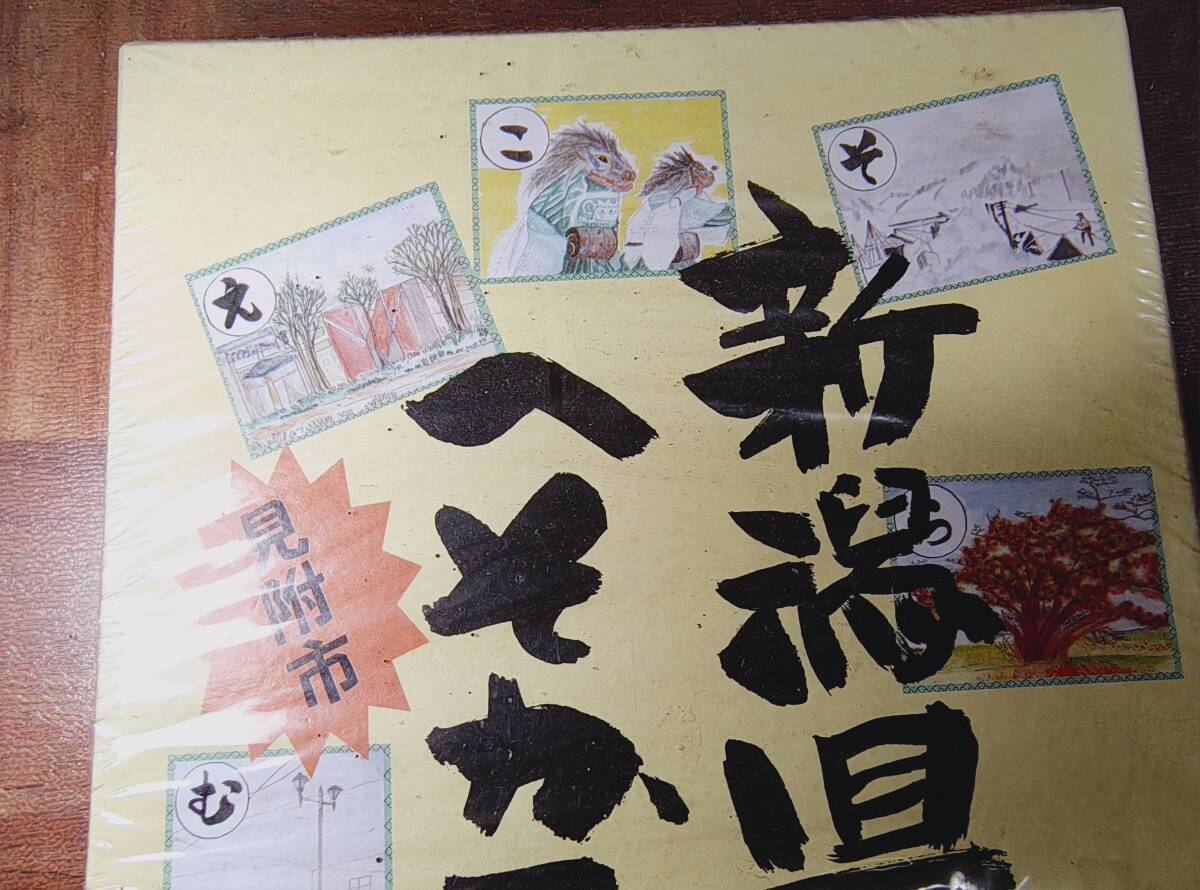 新潟県
へそか
見附市
そ
こ
え
む